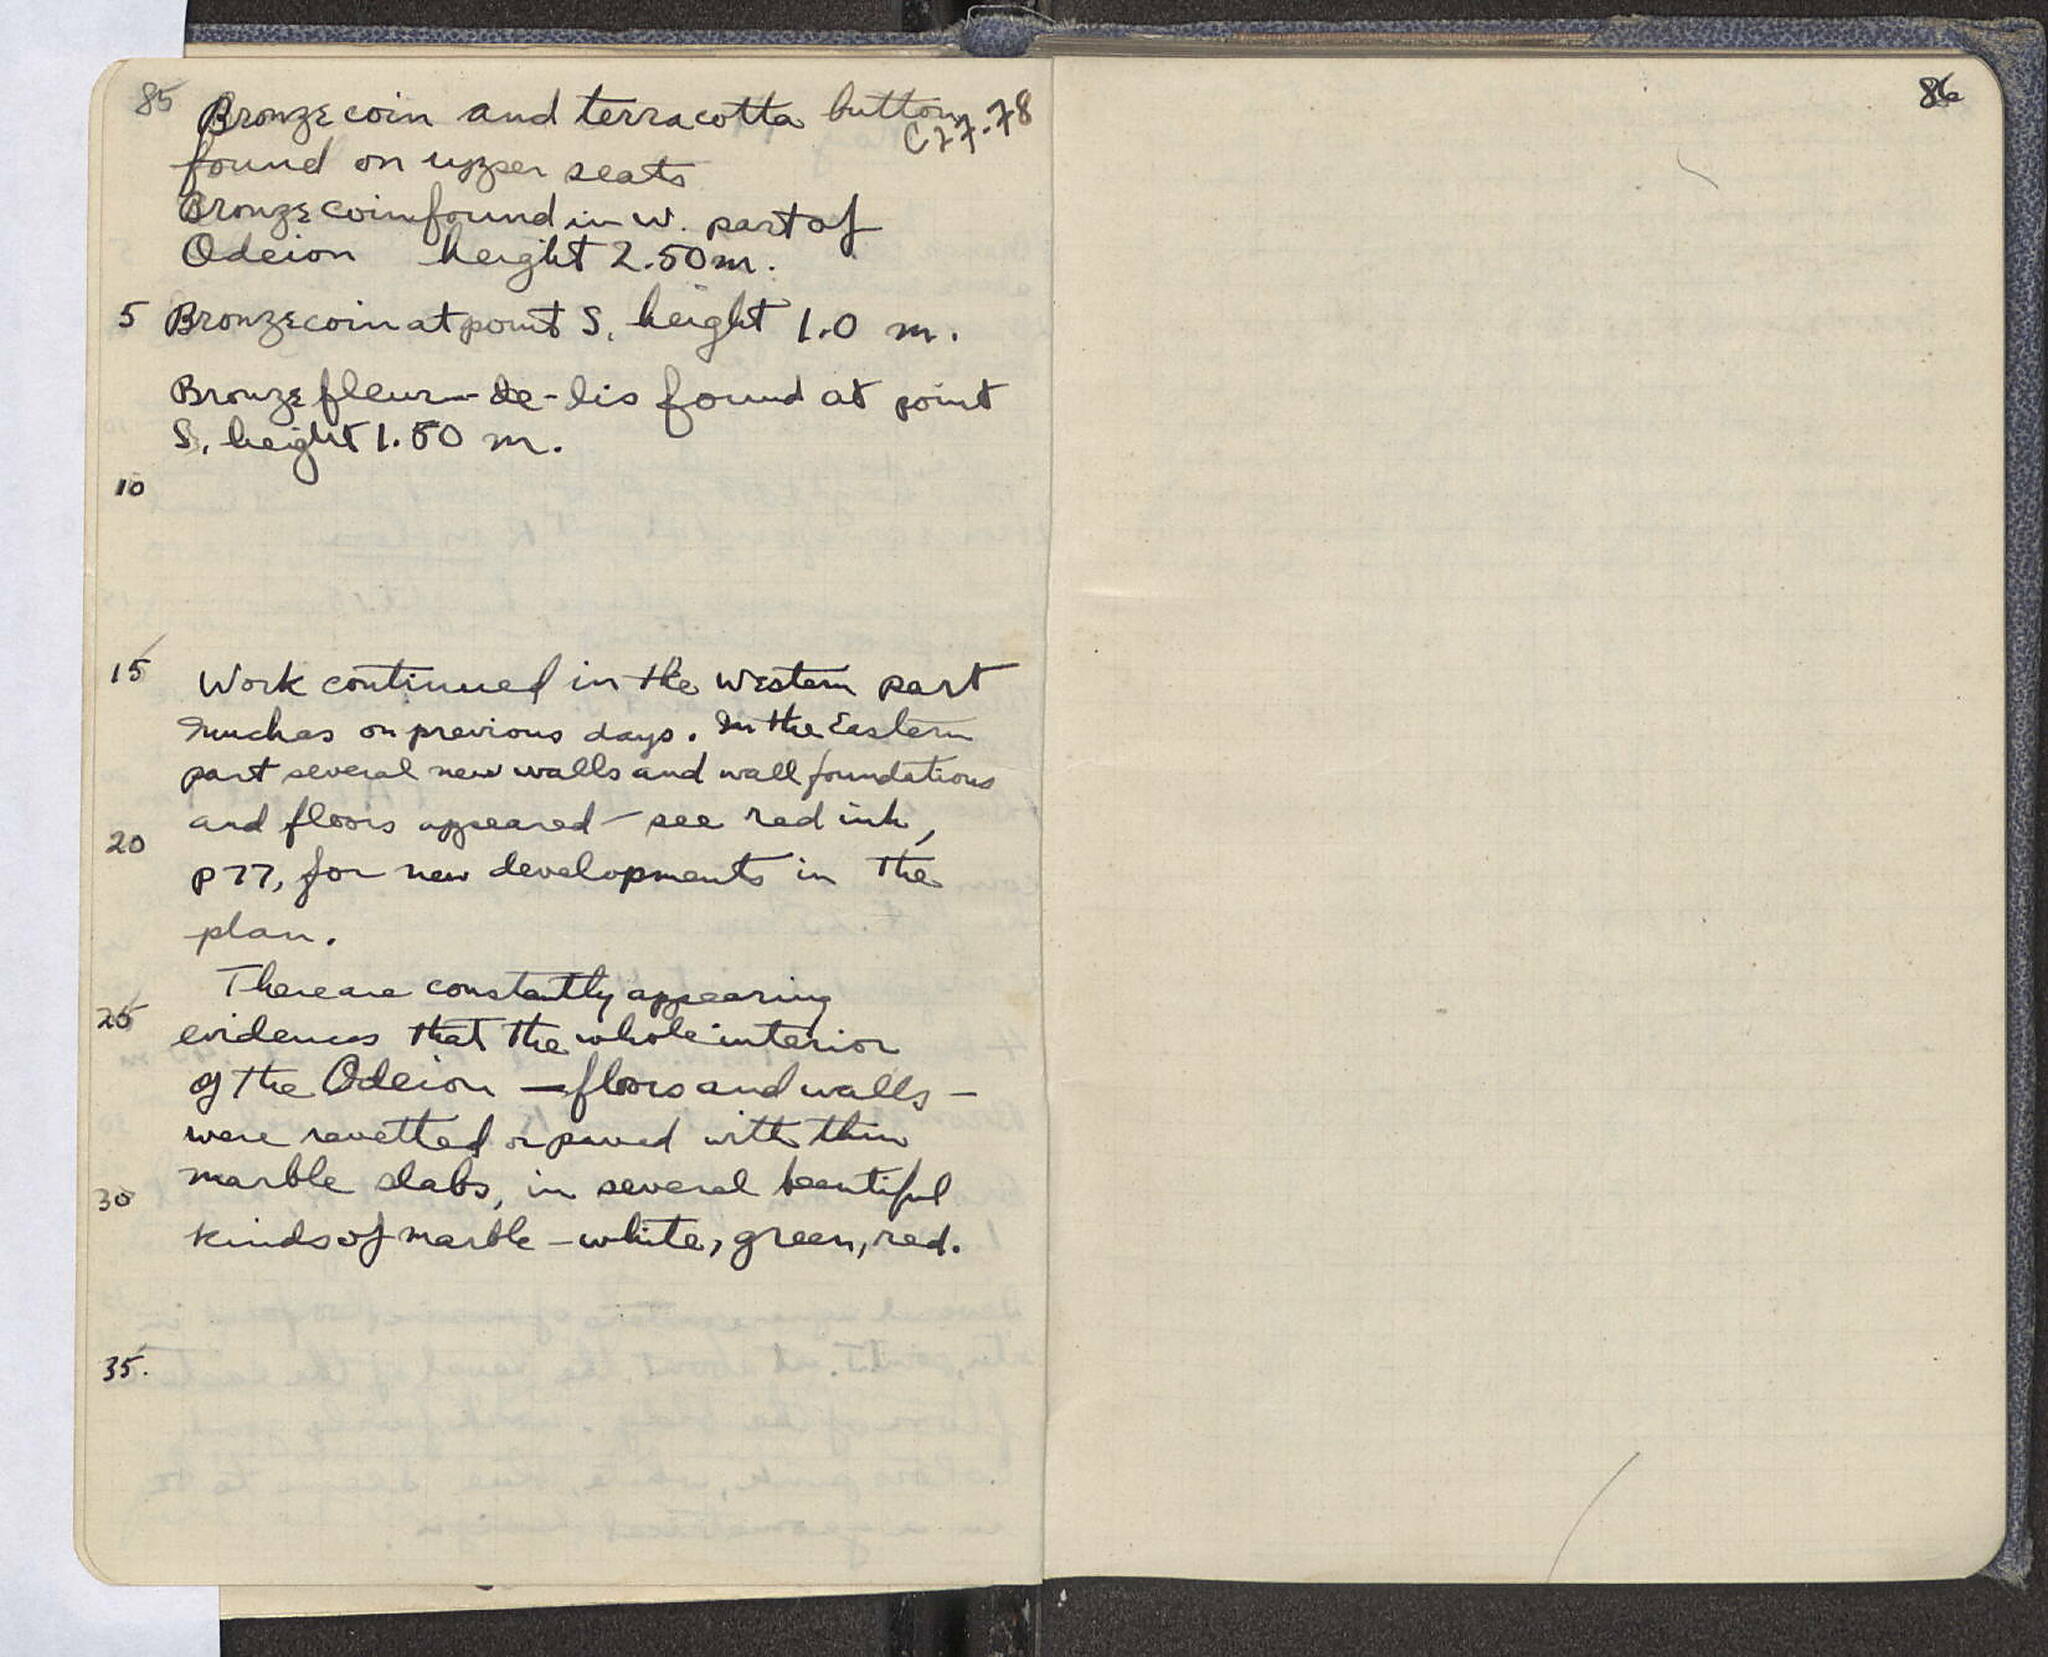 85 Bronze coin and terracotta button
C27.78
found on upper seats
Bronze coin found in W. part of
Odeion height 2.50 m.
5 Bronze coin at point S, height 1.0 m.
Bronze fleur-de-lis found at point
S, height 1.50 m.
10
15 Work continued in the western part
much as on previous days. In the Eastern
part several new walls and wall foundations
and floors appeared - see red ink,
20
p 77, for new developments in the
plan.
There are constantly appearing
25
evidences that the whole interior
of the Odeion - floors and walls -
were revetted or paved with thin
marble slabs, in several beautiful
30
kinds of marble - white, green, red.
35.
86